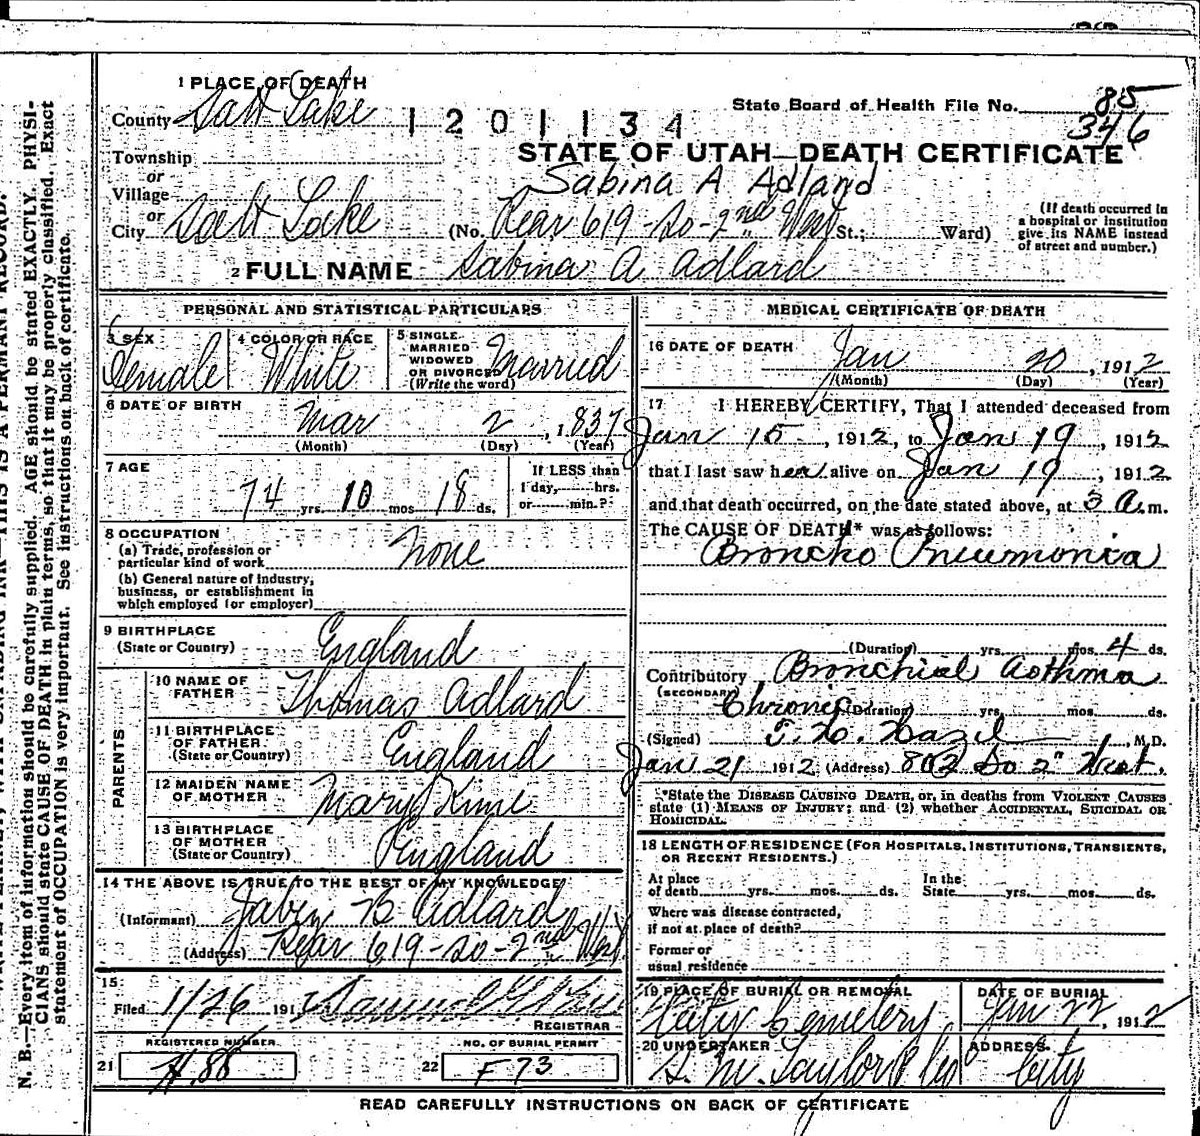 1 PLACE OF DEATH
County Salt Lake
1201134
State Board of Health File No. 85
346
STATE OF UTAH—DEATH CERTIFICATE
Township
or
Village
or
City Salt Lake
Sabina A Adland
(No. Rear 619-So-2nd West St.; Ward)
(If death occurred in
a hospital or institution
give its NAME instead
of street and number.)
2 FULL NAME Sabina A Adlard
PERSONAL AND STATISTICAL PARTICULARS
3 SEX
Female
4 COLOR OR RACE
White
5 SINGLE
MARRIED
WIDOWED
OR DIVORCED
(Write the word)
Married
6 DATE OF BIRTH
Mar 2, 1837
(Month) (Day) (Year)
7 AGE
74 yrs. 10 mos 18 ds.
If LESS than
1 day, hrs.
or min.?
8 OCCUPATION
(a) Trade, profession or
particular kind of work none
(b) General nature of Industry,
business, or establishment in
which employed (or employer)
9 BIRTHPLACE
(State or Country) England
PARENTS
10 NAME OF
FATHER Thomas Adlard
11 BIRTHPLACE
OF FATHER
(State or Country) England
12 MAIDEN NAME
OF MOTHER Mary Kime
13 BIRTHPLACE
OF MOTHER
(State or Country) England
14 THE ABOVE IS TRUE TO THE BEST OF MY KNOWLEDGE
(Informant) B Adlard
(Address) Rear 619-So-2nd West
15
Filed 1/26 191
REGISTRAR
REGISTERED NUMBER
21 H.88
NO. OF BURIAL PERMIT
22 F 73
MEDICAL CERTIFICATE OF DEATH
16 DATE OF DEATH
Jan 20, 1912
(Month) (Day) (Year)
17 I HEREBY CERTIFY, That I attended deceased from
Jan 15, 1912, to Jan 19, 1912
that I last saw her alive on Jan 19, 1912
and that death occurred, on the date stated above, at 3 a.m.
The CAUSE OF DEATH* was as follows:
Broncho Pneumonia
(Duration) yrs. mos. 4 ds.
Contributory Bronchial Asthma
(SECONDARY)
Chronic (Duration) yrs. mos. ds.
(Signed) M.D.
Jan 21 1912 (Address) 802 So 2" West.
*State the DISEASE CAUSING DEATH, or, in deaths from VIOLENT CAUSES
state (1) MEANS OF INJURY; and (2) whether ACCIDENTAL, SUICIDAL OR
HOMICIDAL.
18 LENGTH OF RESIDENCE (FOR HOSPITALS, INSTITUTIONS, TRANSIENTS,
OR RECENT RESIDENTS.)
At place
of death yrs. mos. ds.
In the
State yrs. mos. ds.
Where was disease contracted,
if not at place of death?
Former or
usual residence
19 PLACE OF BURIAL OR REMOVAL
City Cemetery
DATE OF BURIAL
Jan 22, 1912
20 UNDERTAKER
S. M. Taylor & Co
ADDRESS
City
READ CAREFULLY INSTRUCTIONS ON BACK OF CERTIFICATE
THIS IS A PERMANT RECORD.
N. B.—Every item of information should be carefully supplied. AGE should be stated EXACTLY. PHYSI-
CIANS should state CAUSE OF DEATH in plain terms, so that it may be properly classified. Exact
statement of OCCUPATION is very important. See instructions on back of certificate.